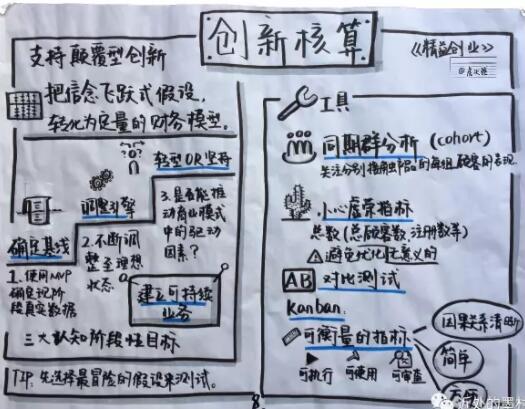 创新核算
《精益创业》
支持颠覆型创新
把信念飞跃式假设,
转化为定量的财务模型。
转型OR坚持
调整引擎
确定基线
1.使用MVP
确定现阶
段真实数据
2.不断调
整至理想
状态
3.是否能推
动商业模式
中的驱动
因素?
建立可持续
业务
三大认知阶段性目标
TIP:先选择最冒险的假设来测试。
工具
同期群分析(cohort)
关注分别接触产品的每组顾客的表现
小心虚荣指标
总数(总顾客数、注册数等)
避免优化无意义的
AB 对比测试
Kanban:
可衡量的指标
可执行
可使用
可审查
因果关系清晰
简单
8.
近处的器材